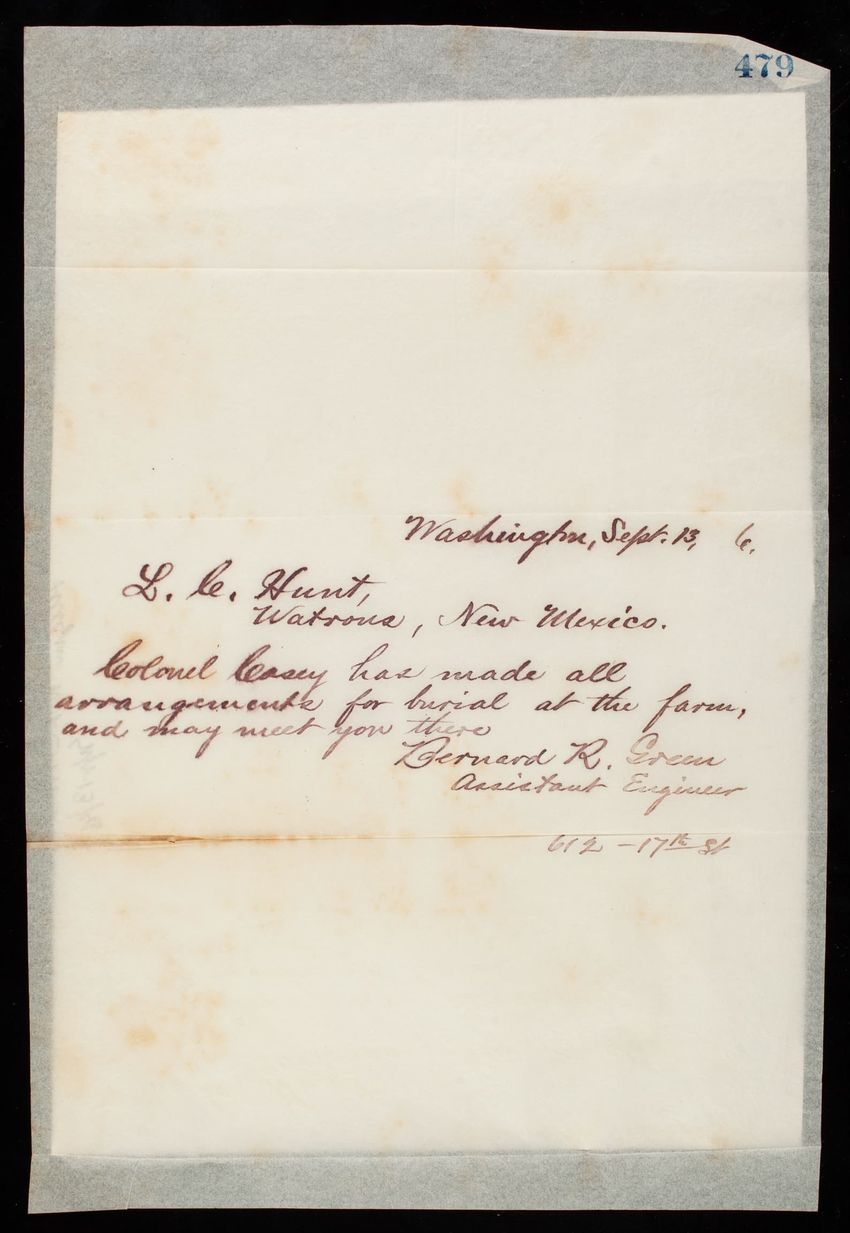 479
Washington, Sept. 13, 6.
L. C. Hunt,
Watrous, New Mexico.
Colonel Casey has made all
arrangements for burial at the farm,
and may meet you there
Bernard R. Green
Assistant Engineer
612 - 17th St